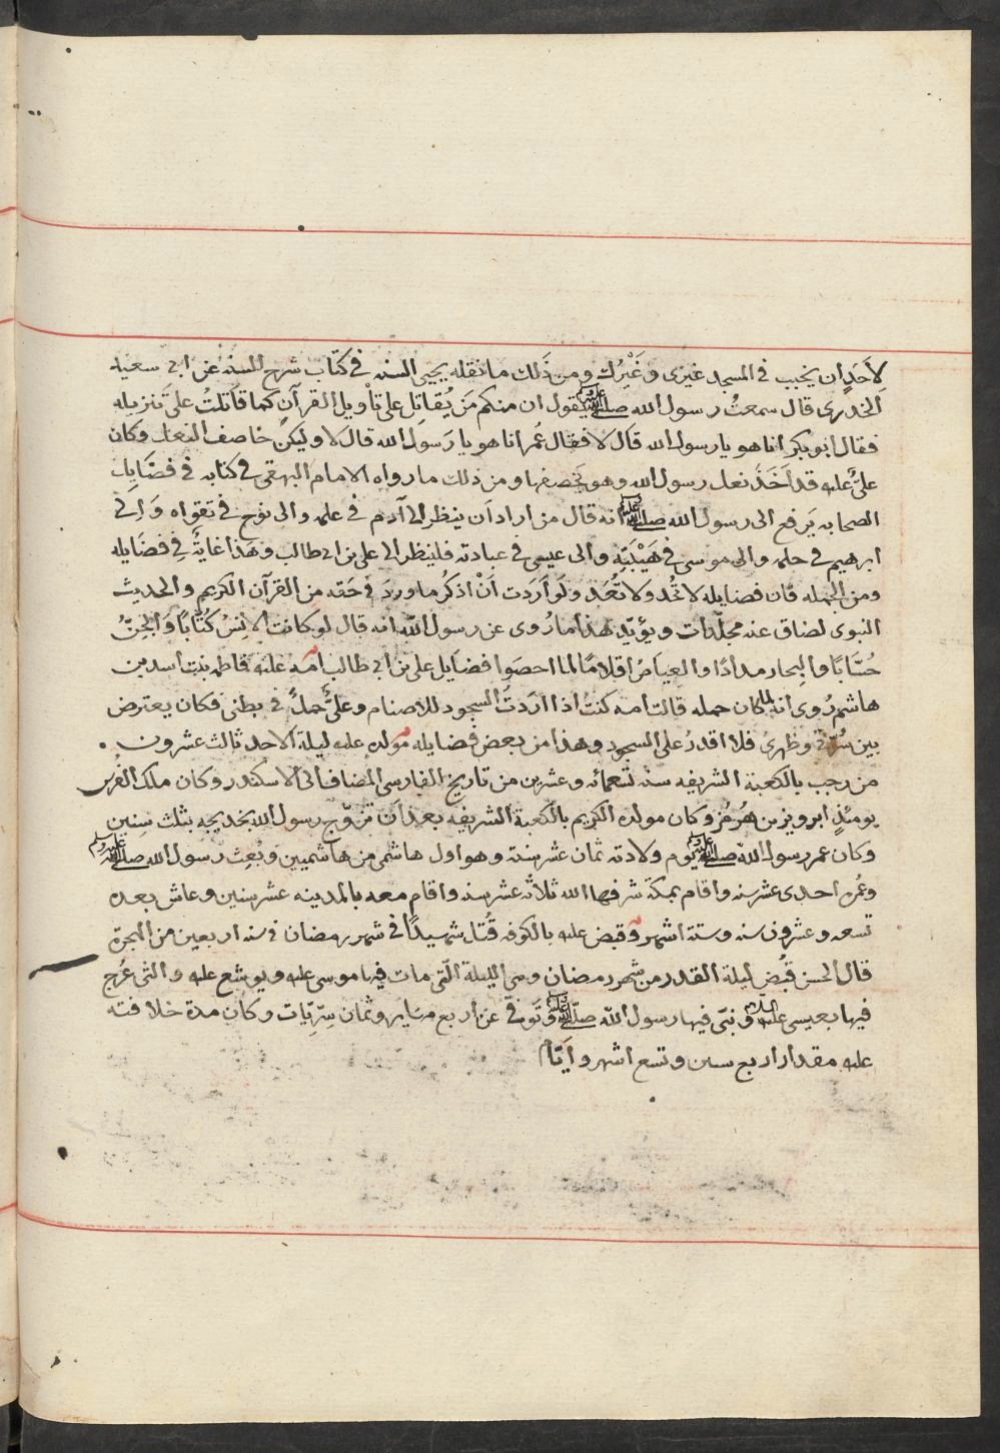 لاَحدٍ ان يجنب فى المسجد غيرى وغَيْرك ومن ذَلك ما نقله يحيى السنه فى كتاب شرح السنه عن ابى سعيد
الخدرى قال سمعتُ رسول الله صلى الله عليه وسلم يقول ان منكم مَن يُقاتِل على تأويل القرآن كما قاتلتُ علىَ تنزيله
فقال ابو بكر انا هو يا رسول الله قال لا فقال عُمر انا هو يا رسول الله قال لا ولكن خاصف النعل وكان
علىٌ عليه قد اَخَذَ نعل رسول الله وهو يخصفها ومن ذلك ما رواه الامام البهقى فى كتابه فى فضَايل
الصحابه يَرفع الى رسول الله صلى الله عليه وسلم انه قال من اراد اَن ينظر الى آدم فى علمه والى نوح فى تقواه وَالى
ابرهيم فى حلمه والى موسى فى هَيْبَتِه والى عيسى فى عبادته فلينظر الى على بن ابى طالب وهَذا غايةٌ فِى فضَايله
ومن الجمله فان فضايله لا تُحَد ولا تُعَدّ ولَو اَرَدت اَنْ اذكرُ ما وردَ فى حَقه من القرآن الكريم والحديث
النبوى لضاق عنه مجلّدات ويؤيّد هذا ما رُوى عن رسول الله انه قال لو كانت الانِسُ كُتَّابًا وَالجنُّ
حُسَّابًا والبحار مدادًا والغياض اقلامًا لما احصَوا فضايل على بن ابى طالب امه عليه فاطمه بنت اسد بن
هاشم رُوى انه لما كان حمله قالت امه كنتُ اذا ارَدتَ السجود للاصنام وعلىٌّ حملٌ فى بطنى فكان يعترض
بين سُرّتى وظهرى فلا اقدرُ على السجود وهذا من بعض فضايله مولده عليه ليلة الاحد ثالث عشرون
من رجب بالكعبة الشريفه سنه تسعمائه وعشرين من تاريخ الفارسى المضاف الى الاسكندر وكان ملك الفُرس
يومئذٍ ابرويز بن هُرمُز وكان مولده الكريم بالكعبة الشريفه بعد اَن تزوّج رسول الله بخديجه بثلث سِنين
وكان عمر رسول الله صلى الله عليه وسلم يوم ولادته ثمان عشر سنة وهو اول هاشمى من هاشميين وبُعِث رسول الله صلى الله عليه وسلم
وعمُره احدى عشر سنه واقام بمكة شرفها الله ثلاثه عشر سنه واقام معه بالمدينه عشر سنين وعاش بعده
تسعه وعشرون سنه وستة اشهر وقبض عليه بالكوفه قُتل شهيدًا فى شهر رمضان فى سنه اربعين من الهجرة
قال الحسن قُبُض ليلة القدر من شهر رمضان وهى الليلة الّتى مات فيها موسى عليه ويوشع عليه والتى عُرج
فيها بعيسى عليه السلام ونبّى فيها رسول الله صلى الله عليه وسلم وتَوفىّ عن اربع مَهاير وثمان سِرّيّات وكان مدة خلافته
عليه مقدار اربع سنين وتسع اشهر واَيّام